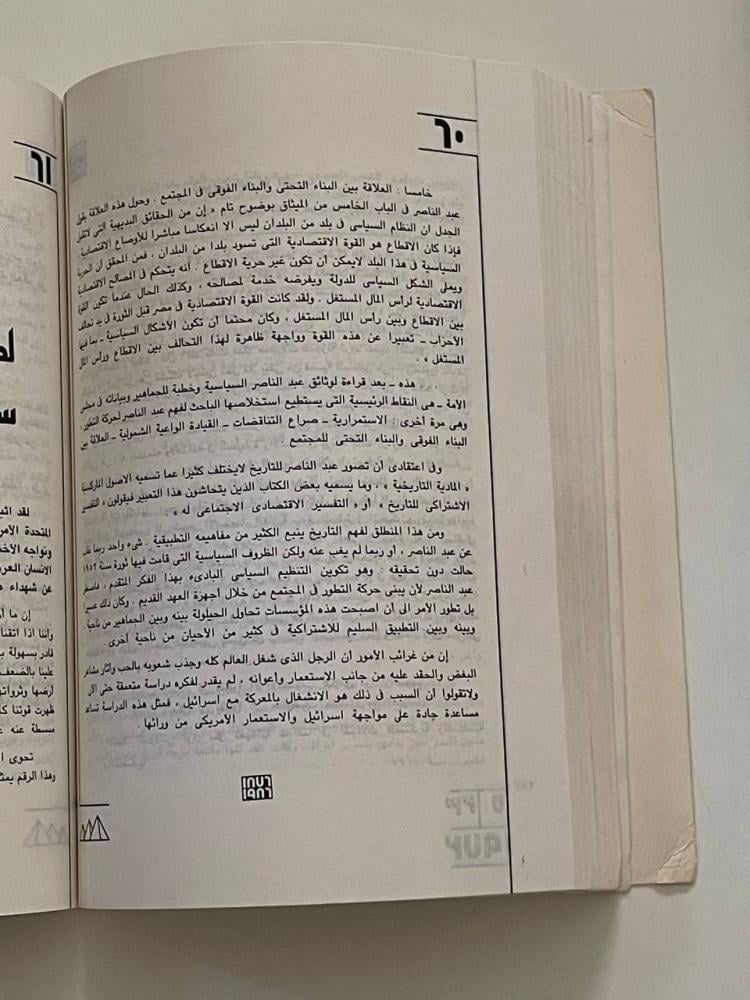 ٦٠
خامسا : العلاقة بين البناء التحتى والبناء الفوقى فى المجتمع . وحول هذه العلاقة يقول
عبد الناصر فى الباب الخامس من الميثاق بوضوح تام « إن من الحقائق البديهية التى لا تقبل
الجدل ان النظام السياسى فى بلد من البلدان ليس الا انعكاسا مباشرا للأوضاع الاقتصادية .
فإذا كان الاقطاع هو القوة الاقتصادية التى تسود بلدا من البلدان ، فمن المحقق أن الحرية
السياسية فى هذا البلد لايمكن أن تكون غير حرية الاقطاع . أنه يتحكم فى المصالح الاقتصادية
ويملى الشكل السياسى للدولة ويفرضه خدمة لمصالحه ، وكذلك الحال عندما تكون القوة
الاقتصادية لرأس المال المستغل . ولقد كانت القوة الاقتصادية فى مصر قبل الثورة فى يد تحالف
بين الاقطاع وبين رأس المال المستغل ، وكان محتما أن تكون الأشكال السياسية ـ بما فيها
الأحزاب ـ تعبيرا عن هذه القوة وواجهة ظاهرة لهذا التحالف بين الاقطاع ورأس المال
المستغل » .
... هذه ـ بعد قراءة لوثائق عبد الناصر السياسية وخطبة للجماهير وبياناته فى مجلس
الأمة ـ هى النقاط الرئيسية التى يستطيع استخلاصها الباحث لفهم عبد الناصر لحركة التطور ،
وهى مرة أخرى : الاستمرارية ـ صراع التناقضات ـ القيادة الواعية الشمولية ـ العلاقة بين
البناء الفوقى والبناء التحتى للمجتمع .
وفى اعتقادى أن تصور عبد الناصر للتاريخ لايختلف كثيرا عما تسميه الاصول الماركسية
« المادية التاريخية » ، وما يسميه بعض الكتاب الذين يتحاشون هذا التعبير فيقولون « التفسير
الاشتراكى للتاريخ » أو « التفسير الاقتصادى الاجتماعى له » .
ومن هذا المنطلق لفهم التاريخ ينبع الكثير من مفاهيمه التطبيقية . شىء واحد ربما غاب
عن عبد الناصر ، أو ربما لم يغب عنه ولكن الظروف السياسية التى قامت فيها ثورة سنة ١٩٥٢
حالت دون تحقيقه : وهو تكوين التنظيم السياسى البادىء بهذا الفكر المتقدم ، فاضطر
عبد الناصر لأن يبنى حركة التطور فى المجتمع من خلال أجهزة العهد القديم . وكان ذلك عسيرا
بل تطور الامر الى أن اصبحت هذه المؤسسات تحاول الحيلولة بينه وبين الجماهير من ناحية
وبينه وبين التطبيق السليم للاشتراكية فى كثير من الأحيان من ناحية أخرى .
إن من غرائب الأمور أن الرجل الذى شغل العالم كله وجذب شعوبه بالحب وأثار مشاعر
البغض والحقد عليه من جانب الاستعمار وأعوانه ، لم يقدر لفكره دراسة متعمقة حتى الآن
ولاتقولوا أن السبب فى ذلك هو الانشغال بالمعركة مع اسرائيل ، فمثل هذه الدراسة تساعد
مساعدة جادة على مواجهة اسرائيل والاستعمار الأمريكى من ورائها .
٦١
لقد اثب
المتحدة الأمر
ونواجه الأخ
الانسان العر
عن شهداء
إن ما أ
وأننا اذا اتقنا
قادر بسهولة ب
علينا بالضعف
ارضها وثرواتها
ظهرت قوتنا كا
مسطة عنه
تحوى ا
وهذا الرقم يمثل